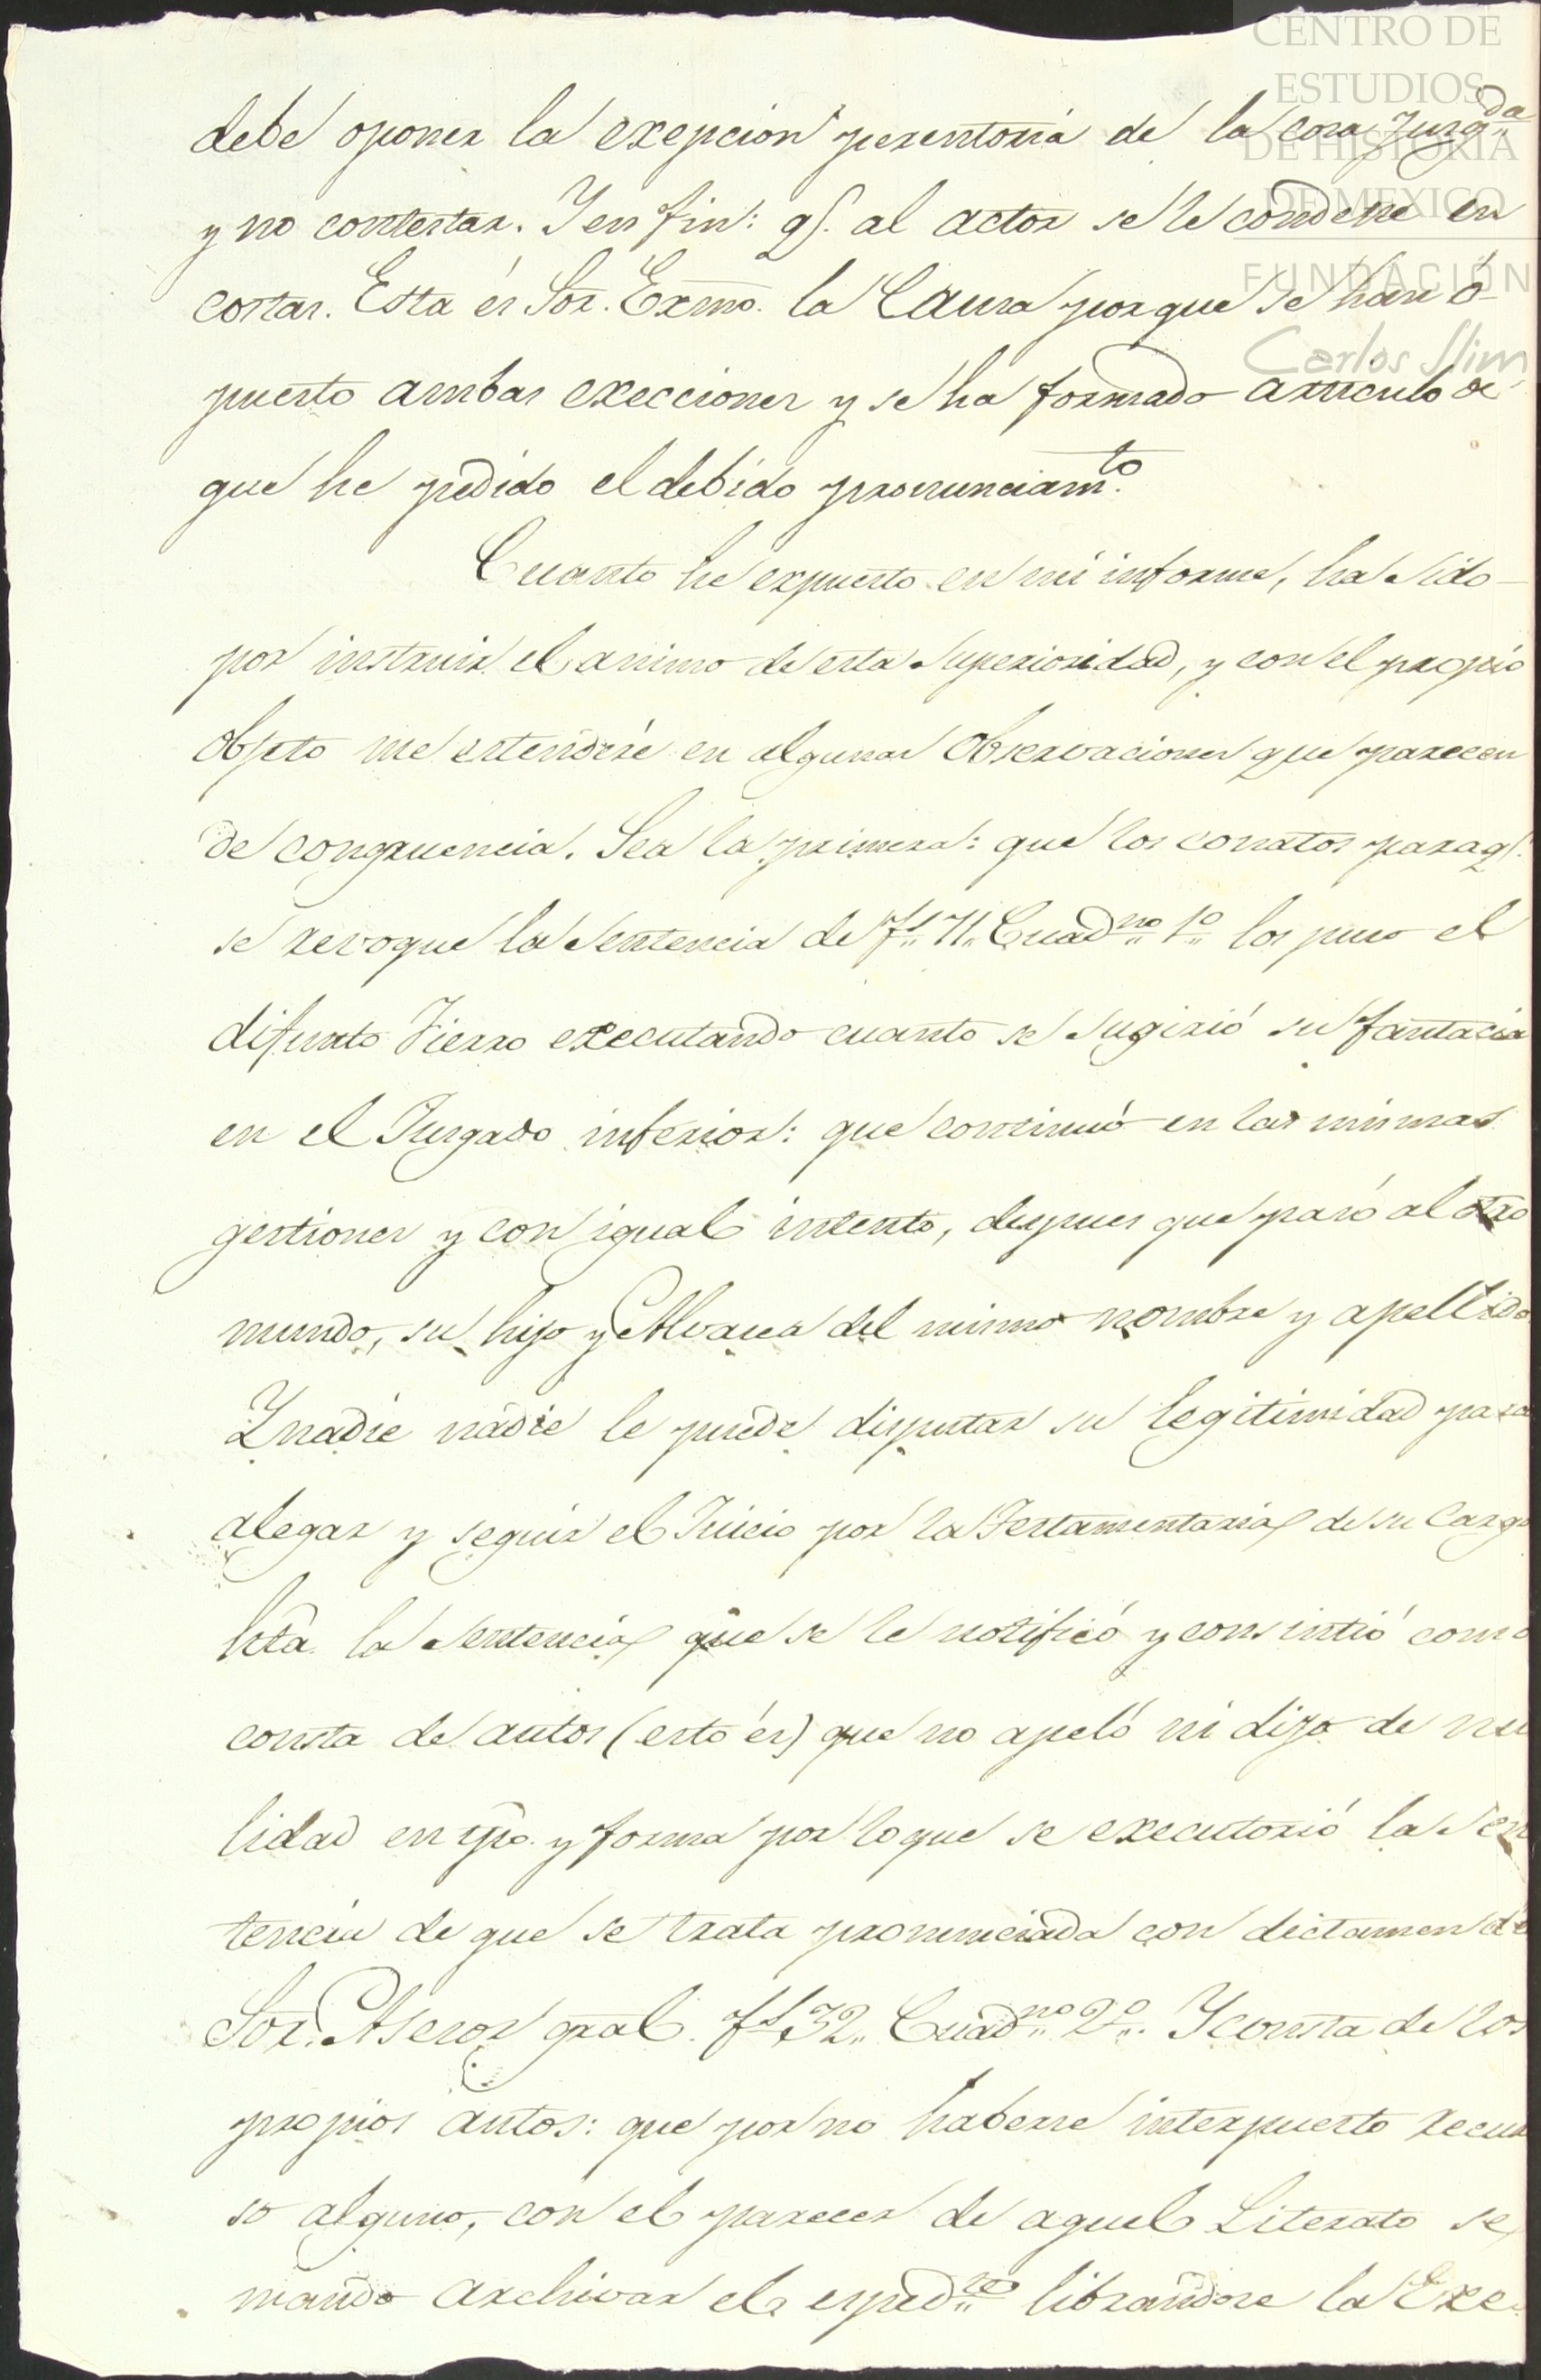 CENTRO DE
ESTUDIOS
DE HISTORIA
DE MEXICO
FUNDACIÓN
Carlos Slim
debe oponer la exepcion perentoria de la cosa juzgda
y no contestar. Y en fin: q. al actor se le condene en
costas. Esta és Sor. Exmo. la Causa porque se han ó-
puesto ambas execciones y se ha formado articulo de
que he pedido el debido pronunciamto.
Cuanto he expuesto en mi informe, ha sido
por instruir el animo de esta Superioridad, y con el propio
objeto me estenderé en algunas observaciones que parecen
de congruencia. Sea la primera: que los conatos para q.
se revoque la Sentencia de fs. 71. Cuadno. 1o. los puso el
difunto Fierro executando cuanto se sugirió su fantacia
en el Jusgado inferior: que continuó en las mismas
gestiones y con igual intento, despues que pasó al otro
mundo, su hijo y Albacea del mismo nombre y apellido
Y nadie nadie le puede disputar su legitimidad para
alegar y seguir el Juicio por la Testamentaria de su cargo
hta. la Sentencia que se le notificó y consintió como
consta de autos (esto és) que no apeló ni dijo de nu
lidad en tpo. y forma por lo que se executorió la Sen
tencia de que se trata pronunciada con dictamen de
Sor. Asesor gral. fs. 32. Cuadno. 2o. Y consta de los
propios autos: que por no haberse interpuesto recur
so alguno, con el parecer de aquel Literato se
mandó archivar el espedte. librandose la Exe-